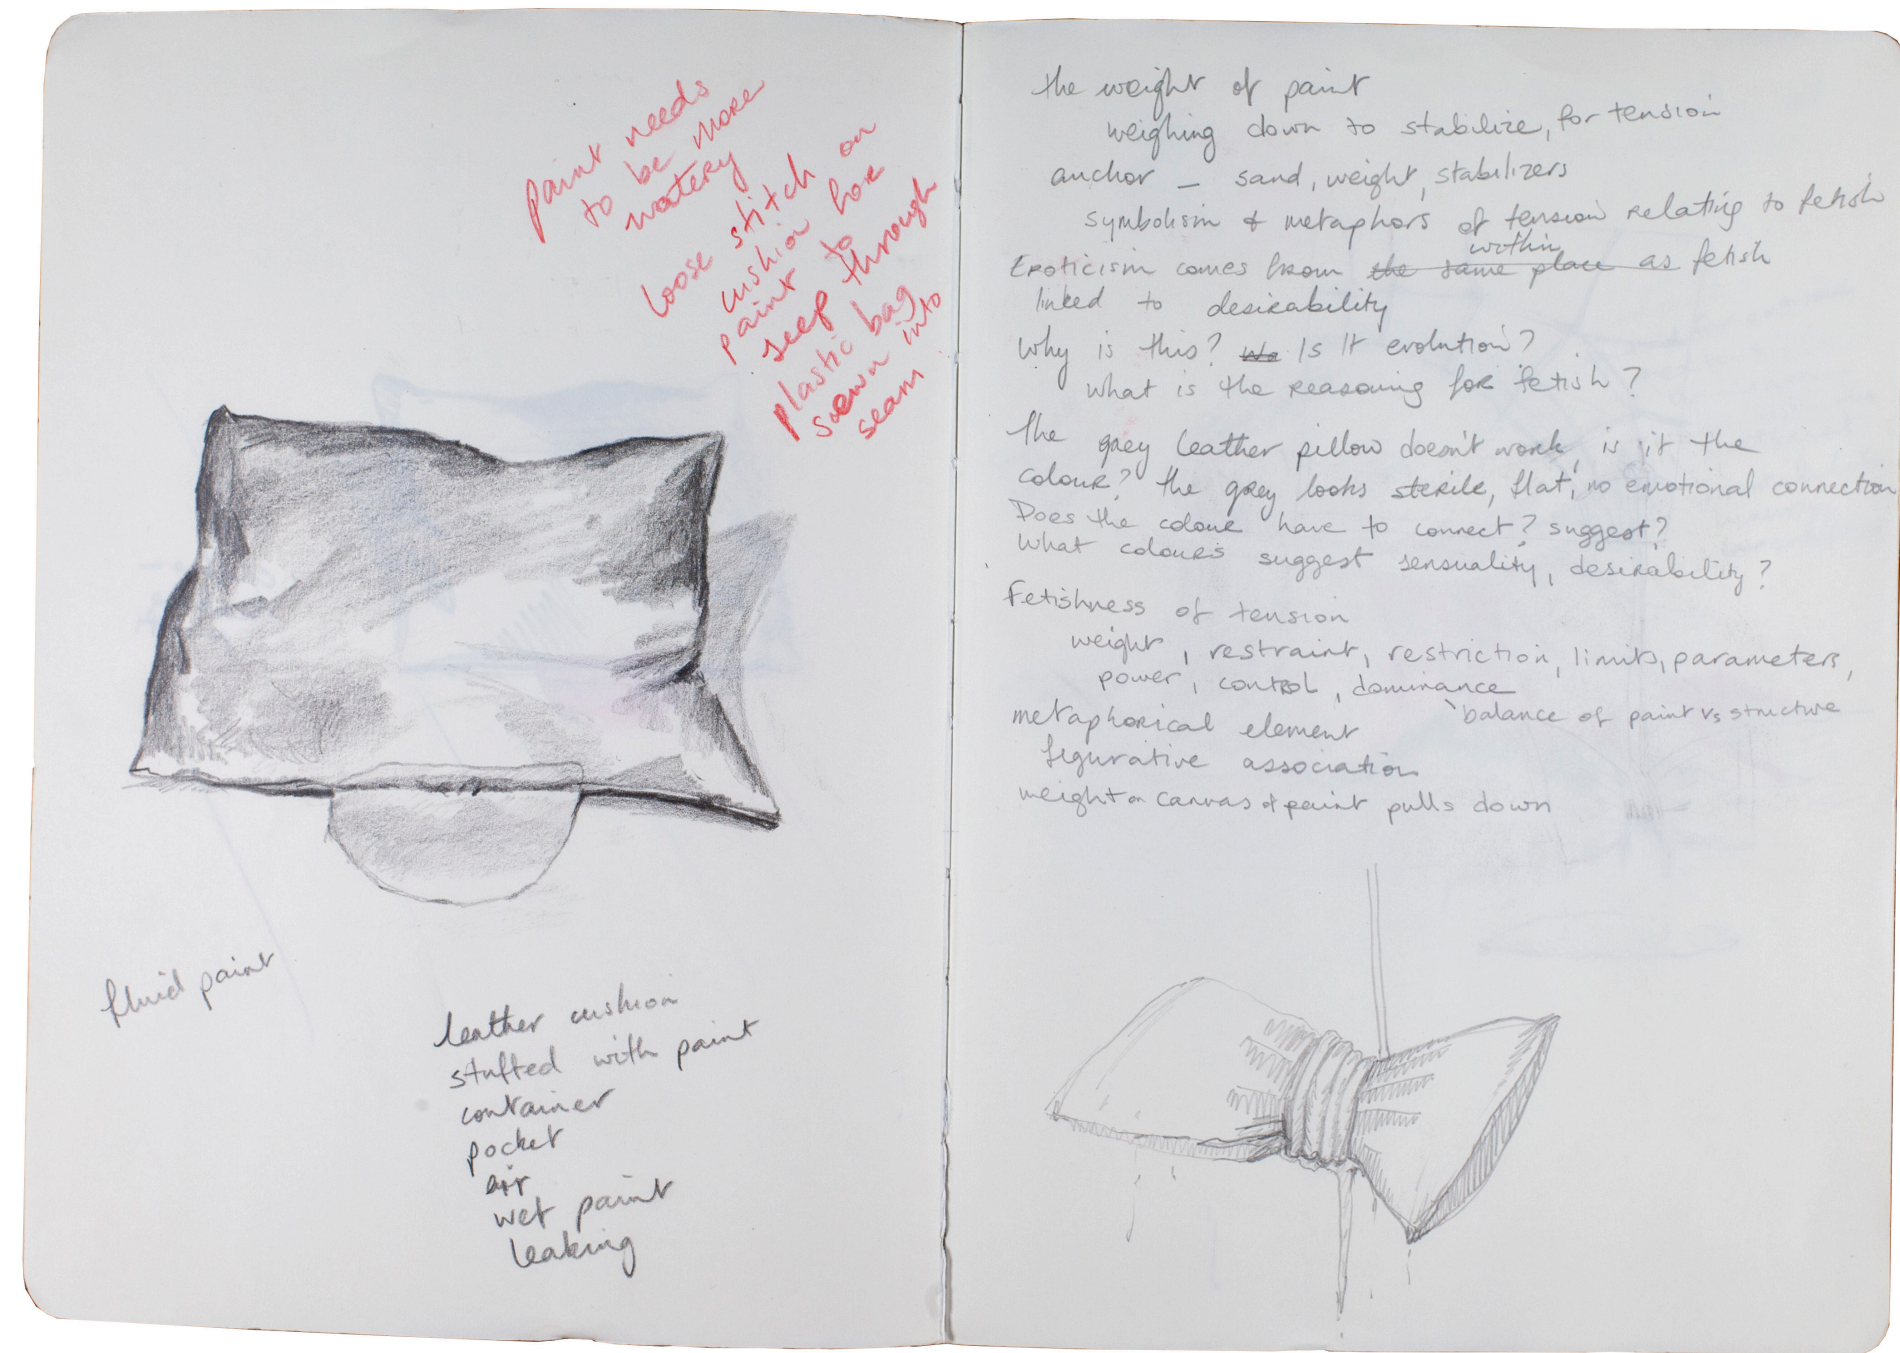 paint needs
to be more
watery
loose stitch on
cushion for
paint to
seep through
plastic bag
sewn into
seam
fluid paint
leather cushion
stuffed with paint
container
pocket
air
wet paint
leaking
the weight of paint
weighing down to stabilize, for tension
anchor – sand, weight, stabilizers
symbolism & metaphors of tension relating to fetish
within
Eroticism comes from the same place as fetish
linked to desirability
Why is this? Is it evolution?
what is the reasoning for fetish?
The grey leather pillow doesn't work, is it the
colour? the grey looks sterile, flat, no emotional connection
Does the colour have to connect? suggest?
What colours suggest sensuality, desirability?
Fetishness of tension
weight, restraint, restriction, limits, parameters,
power, control, dominance
balance of paint vs structure
metaphorical element
figurative association
weight on canvas of paint pulls down